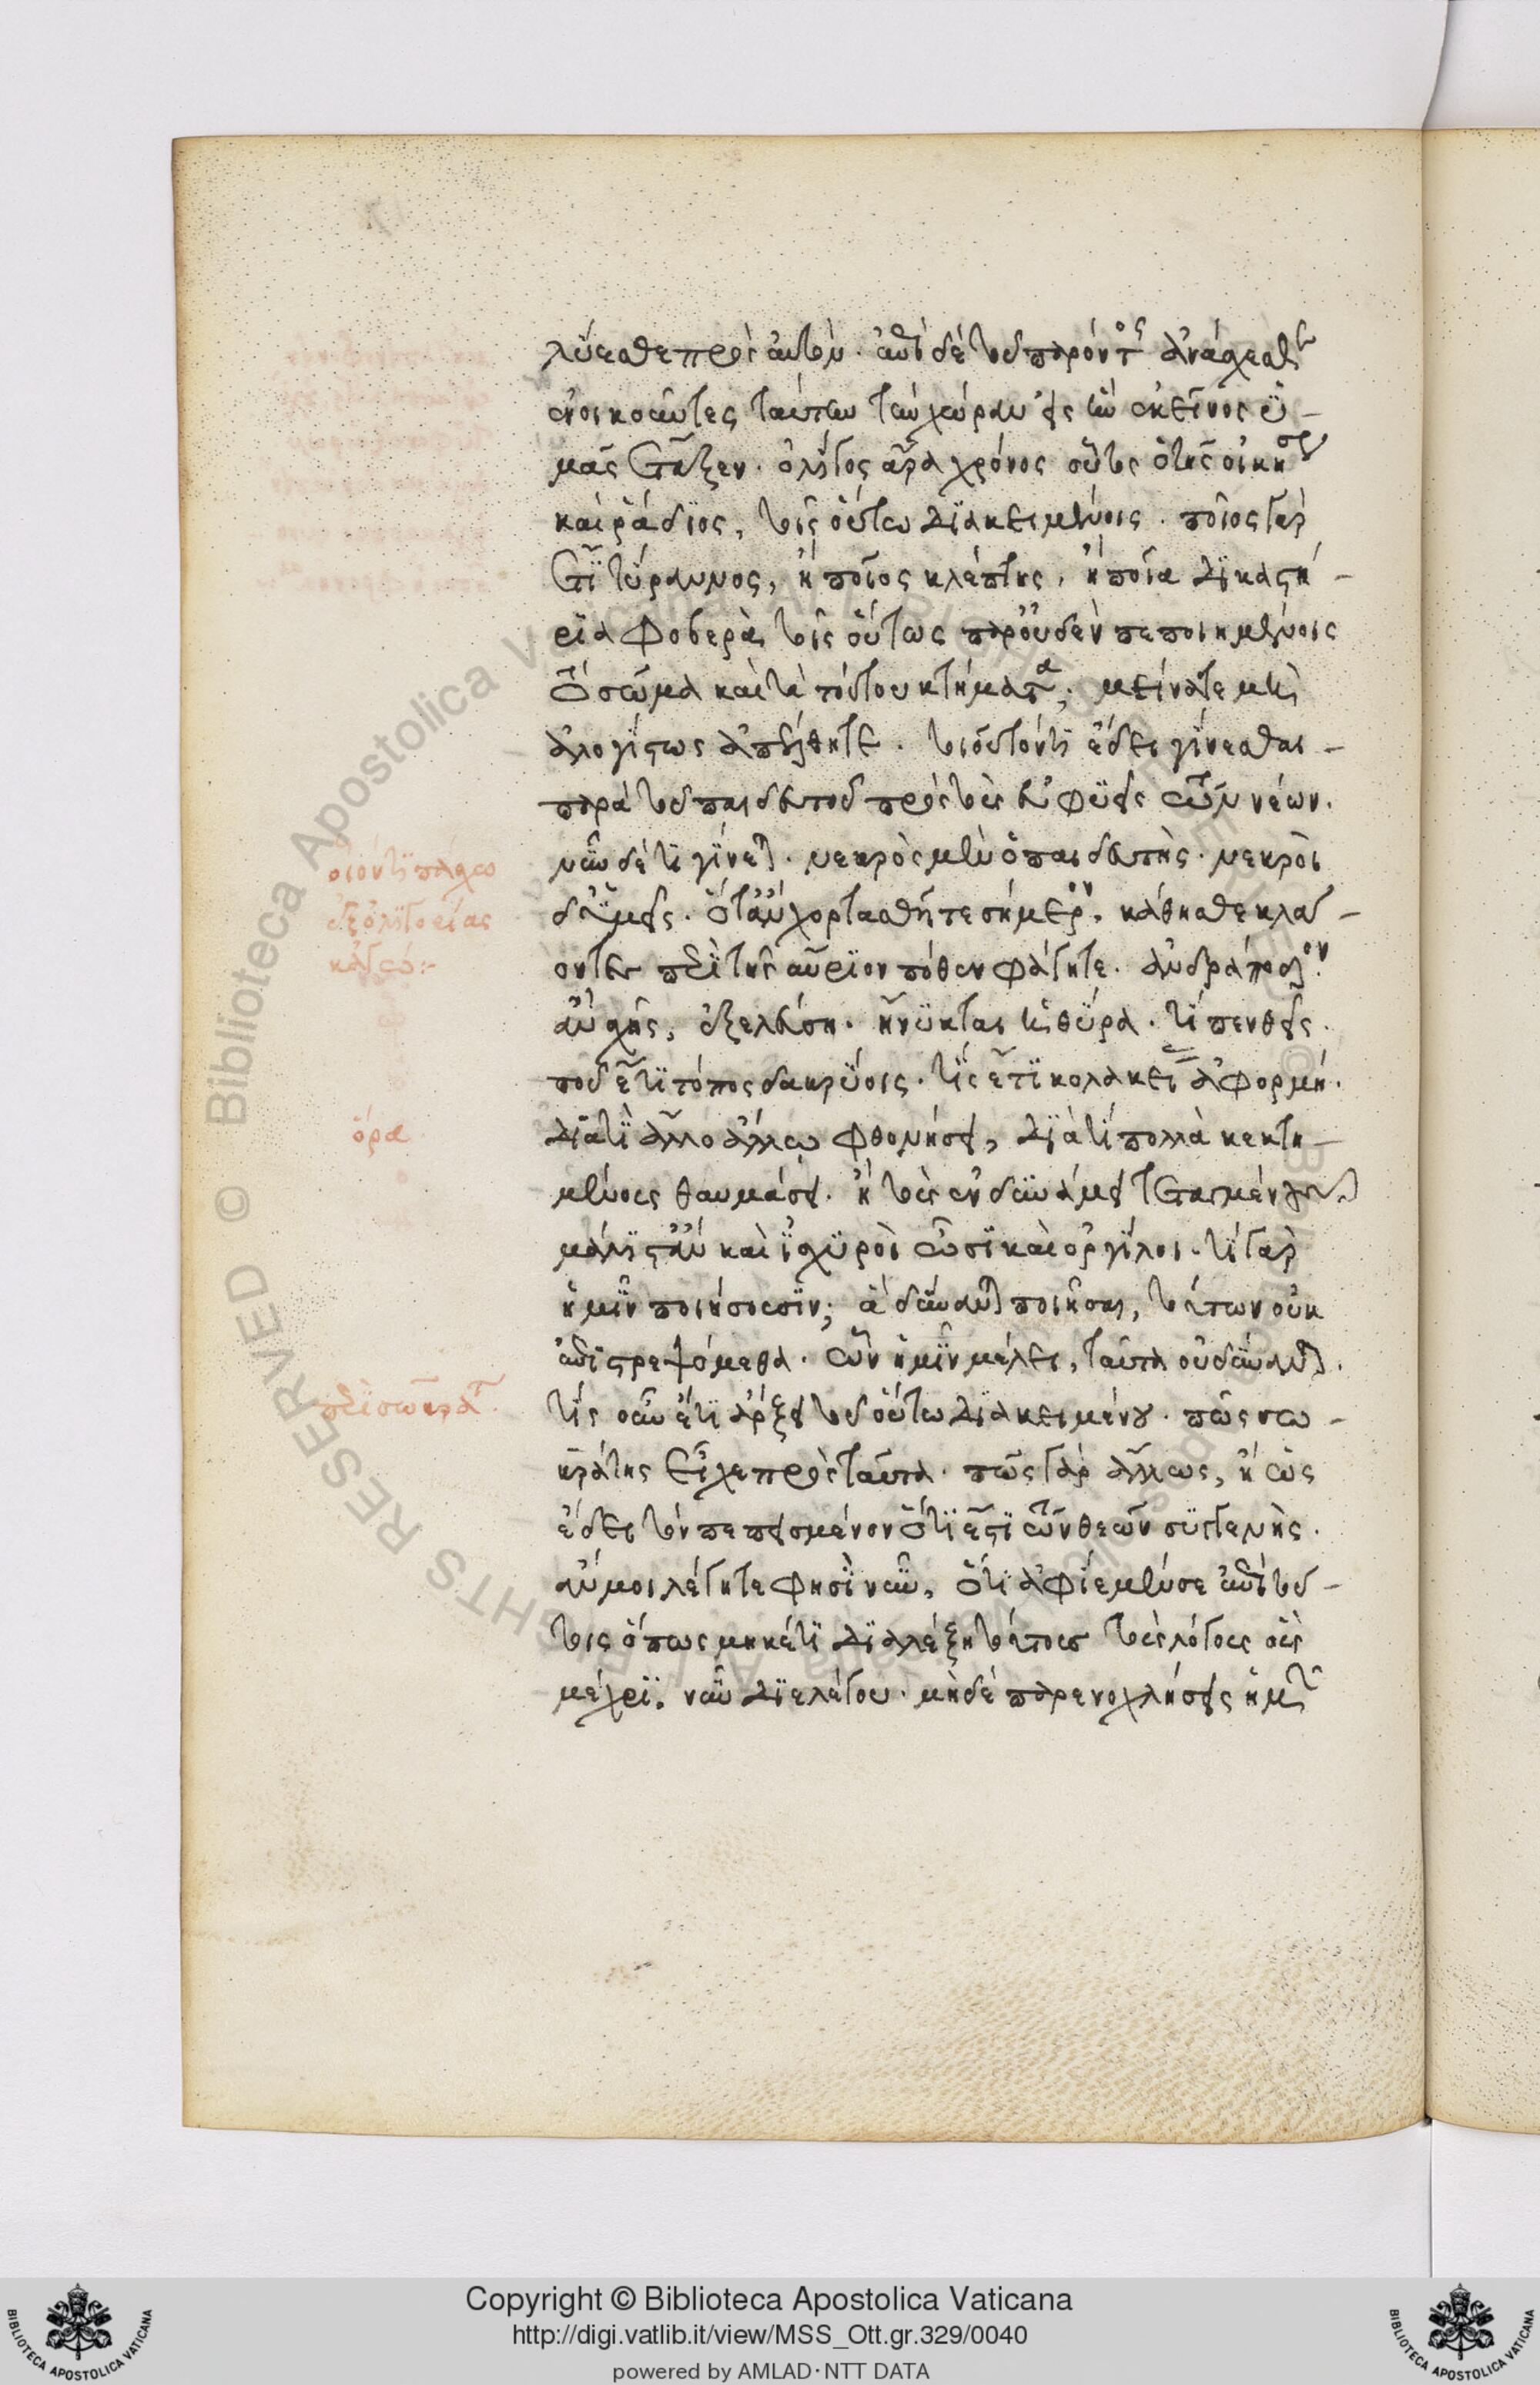 λύεσθε πρὸς αυτόν. ἐπὶ δὲ τοῦ παρόντος ἀνάσχεσθε
ἐνοικοῦντες ταύτην τὴν χώραν εἰς ἣν ἐκεῖνος ὑ-
μᾶς ἔταξεν. ὀλίγος ἄρα χρόνος οὗτος ὁ τῆς οἰκήσεως
καὶ ῥάδιος, τοῖς οὕτω διακειμένοις. ποῖος γὰρ
ἔτι τύραννος, ἢ ποῖος κλέπτης, ἢ ποία δικαστή-
ρια φοβερὰ τοῖς οὕτως παρ' οὐδὲν πεποιημένοις
τὸ σῶμα καὶ τὰ τούτου κτήματα; μείνατε μὴ
ἀλογίστως ἀπέλθητε. τοιοῦτόν τι ἔδει γίνεσθαι
παρὰ τοῦ παιδευτοῦ πρὸς τοὺς εὐφυεῖς τῶν νέων.
νῦν δὲ τί γίνεται. νεκρὸς μὲν ὁ παιδευτὴς. νεκροὶ
δ' ὑμεῖς. ὅταν χορτασθῆτε σήμερον, κάθησθε κλαί-
οντες περὶ τῆς αὔριον πόθεν φάγητε. ἀνδράποδον
ἂν σχῇς, ἐξελεύσῃ. ἤνυκται ἡ θύρα. τί πενθεῖς.
ποῦ ἔτι τόπος δακρύοις. τίς ἔτι κολακείας ἀφορμή.
διὰ τί ἄλλο ἄλλῳ φθονήσει, διὰ τί πολλὰ κεκτη-
μένους θαυμάσει. ἢ τοὺς ἐν δυνάμει τεταγμένους
μάλιστ' ἂν καὶ ἰσχυροὶ ὦσι καὶ ὀργίλοι. τί γὰρ
ἡμῖν ποιήσουσιν; ἃ δύνανται ποιῆσαι, τούτων οὐκ
ἐπιστρεψόμεθα. ὧν ἡμῖν μέλει, ταῦτα οὐ δύνανται.
τίς οὖν ἔτι ἄρξει τοῦ οὕτω διακειμένου. πῶς σω-
κράτης εἶχε πρὸς ταῦτα. πῶς γὰρ ἄλλως, ἢ ὡς
ἔδει τὸν πεπεισμένον ὅτι ἐστὶ τῶν θεῶν συγγενής.
ἄν μοι λέγητε φησὶ νῦν, ὅτι ἀφίεμέν σε ἐπὶ τού-
τοις ὅπως μηκέτι διαλέξῃ τούτους τοὺς λόγους οὓς
μέχρι νῦν διελέγου. μηδὲ παρενοχλήσεις ἡμῶν
οιόν τι πάσχω
ἐξ ὀλιγορίας
κἀγώ:-
ὅρα
περὶ σωκράτους
Copyright © Biblioteca Apostolica Vaticana
http://digi.vatlib.it/view/MSS_Ott.gr.329/0040
powered by AMLAD·NTT DATA